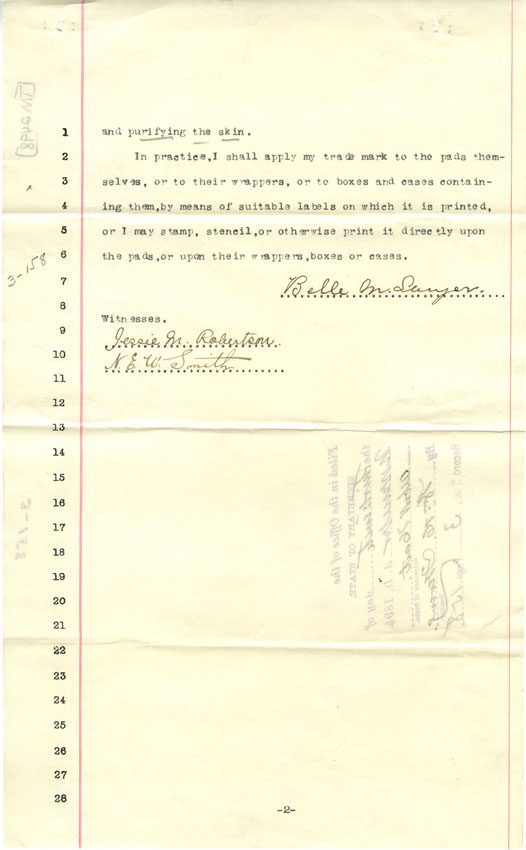 1 and purifying the skin.
2 In practice,I shall apply my trade mark to the pads them-
3 selves, or to their wrappers, or to boxes and cases contain-
4 ing them,by means of suitable labels on which it is printed,
5 or I may stamp, stencil,or otherwise print it directly upon
6 the pads,or upon their wrappers,boxes or cases.
3-158
7 Belle M. Sawyer.
8 Witnesses.
9 Jessie M. Robertson.
10 N. E. W. Smith
11
12
13
14
15
16
17
18
19
20
21
22
23
24
25
26
27
28
Filed in the Office of the
SECRETARY OF STATE
day of
A. D. 1894
By
Record
3
158
3-158
-2-